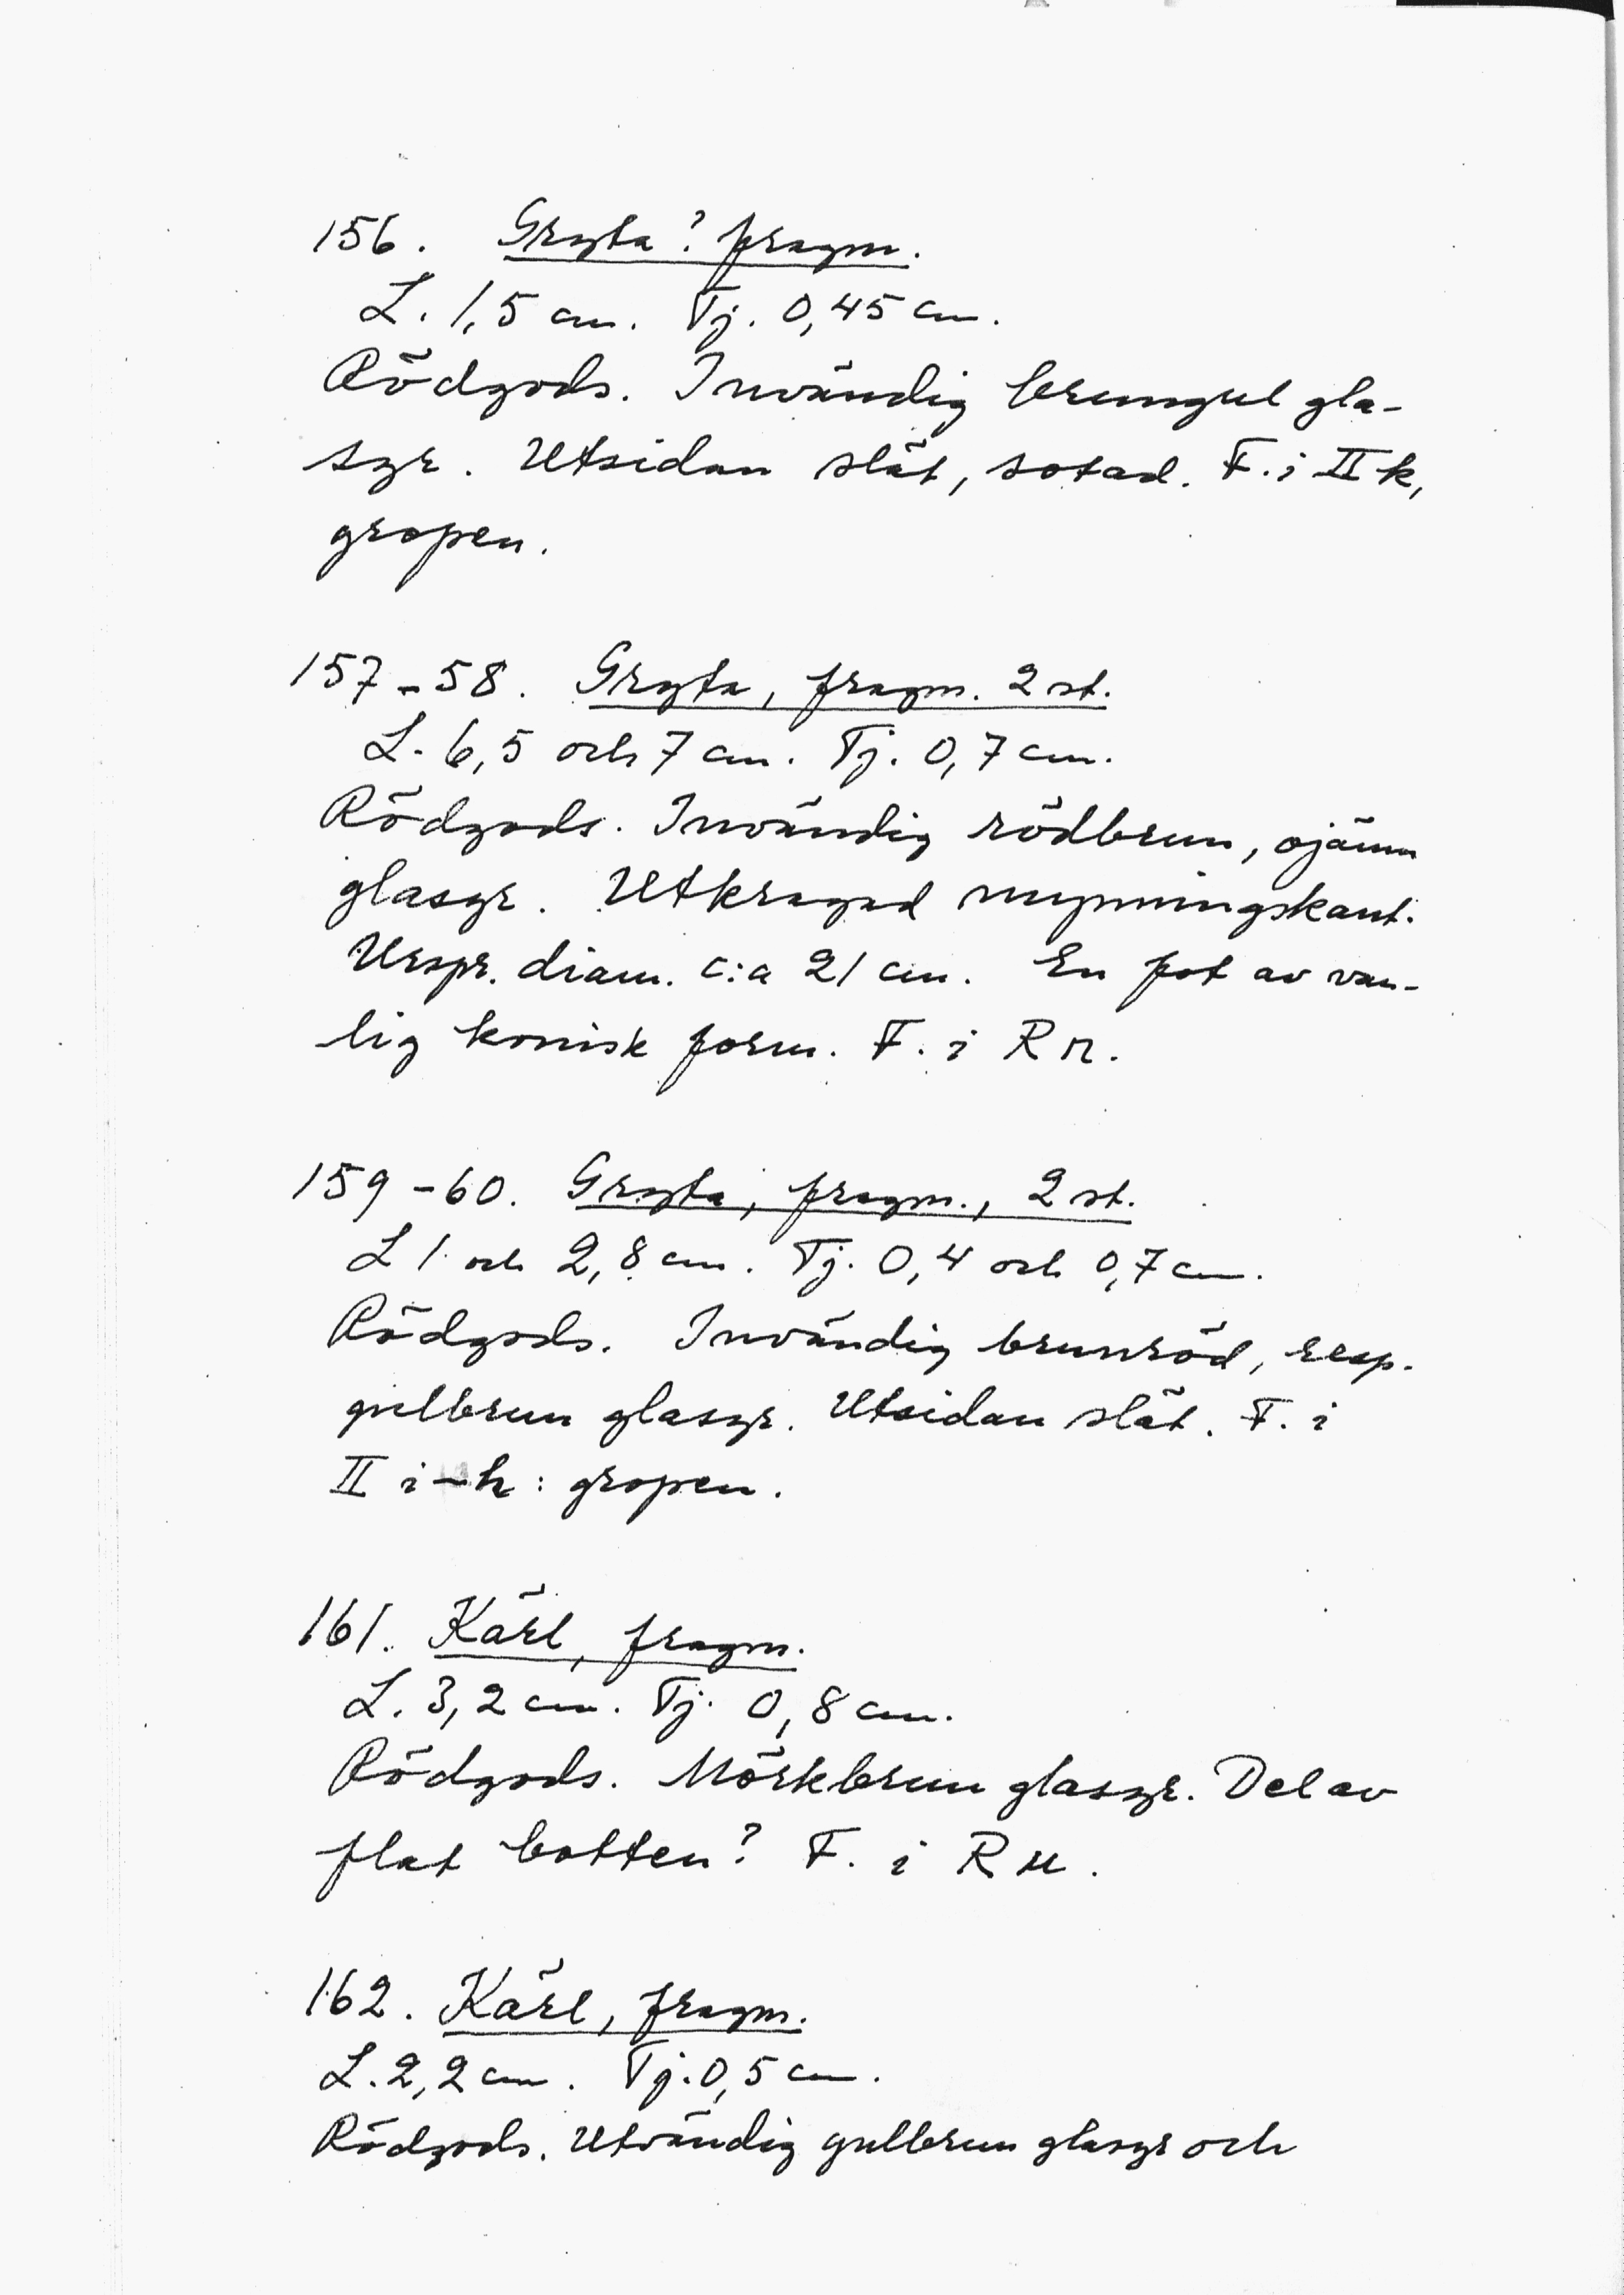 156. Gryta? fragm.
L. 1,5 cm. Tj. 0,45 cm.
Rödgods. Invändig brungul gla-
syr. Utsidan slät, sotad. F. i II k,
gropen.
157-58. Gryta, fragm. 2 st.
L. 6,5 och 7 cm. Tj. 0,7 cm.
Rödgods. Invändig rödbrun, ojämn
glasyr. Utkragad mynningskant.
Urspr. diam. c:a 21 cm. En fot av van-
lig konisk form. F. i R
159-60. Gryta, fragm., 2 st.
L 1 och 2,8 cm. Tj. 0,4 och 0,7 cm.
Rödgods. Invändig brunröd, resp.
gulbrun glasyr. Utsidan slät. F. i
II i-k: gropen.
161. Kärl, fragm.
L. 3,2 cm. Tj. 0,8 cm.
Rödgods. Mörkbrun glasyr. Del av
flat botten? F. i R
162. Kärl, fragm.
L. 2,2 cm. Tj. 0,5 cm.
Rödgods. Utvändig gulbrun glasyr och